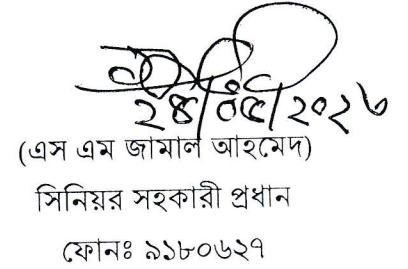 ২৪/০৫/২০২৬
(এস এম জামাল আহমেদ)
সিনিয়র সহকারী প্রধান
ফোনঃ ৯১৮০৬২৭